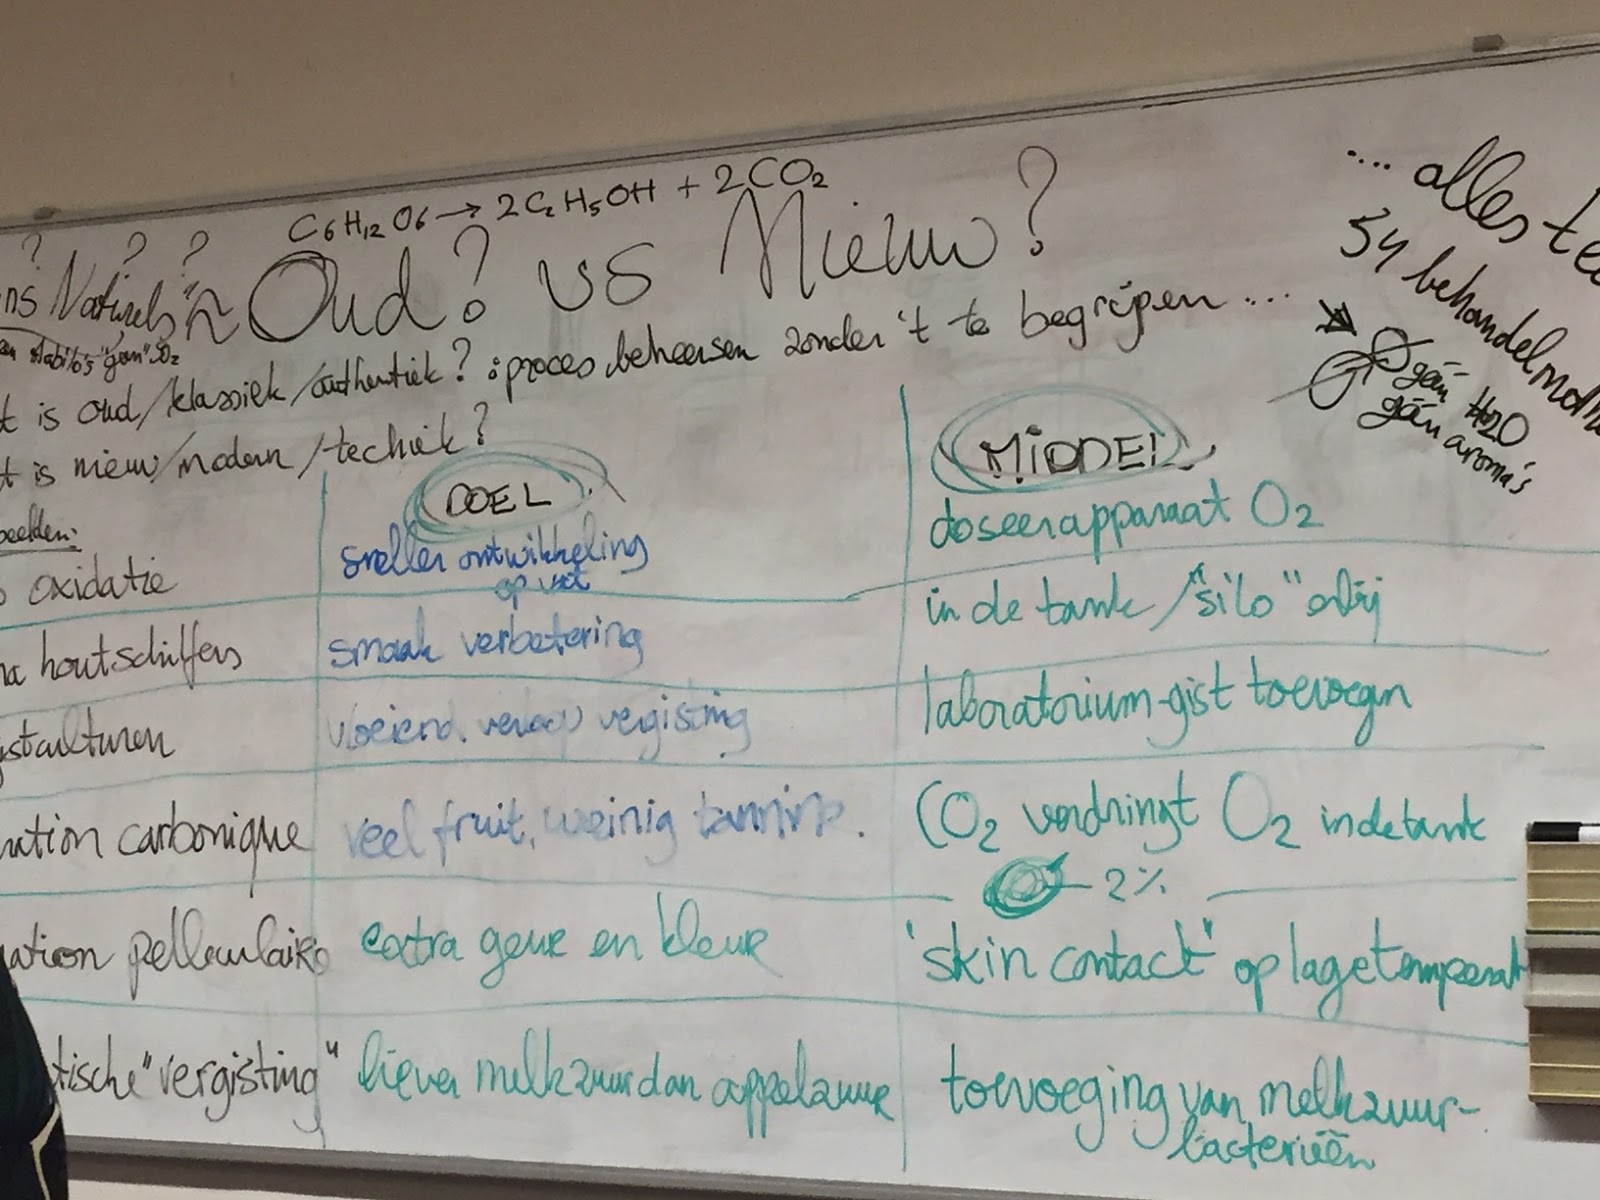 C6H12O6 → 2C2H5OH + 2CO2
? ? ?
ns Naturels" ~ Oud? vs Nieuw?
"geen" SO2
t is oud/klassiek/authentiek? : proces beheersen zonder 't te begrijpen ...
t is nieuw/modern/techiek?
.... alles te
54 behandelmeth
gään H2O
gään aroma's
beelden:
DOEL
MIDDEL
o oxidatie
sneller ontwikkeling
op vat
doseerapparaat O2
na houtschilfers
smaak verbetering
in de tank/"silo" erbij
istculturen
vloeiend. verloop vergisting
laboratorium-gist toevoegen
ration carbonique
veel fruit, weinig tannine.
CO2 verdringt O2 in de tank
2%
ration pelleculaire
extra geur en kleur
"skin contact" op lage temperat
tische "vergisting"
liever melkzuur dan appelzuur
toevoeging van melkzuur-
bacteriëen